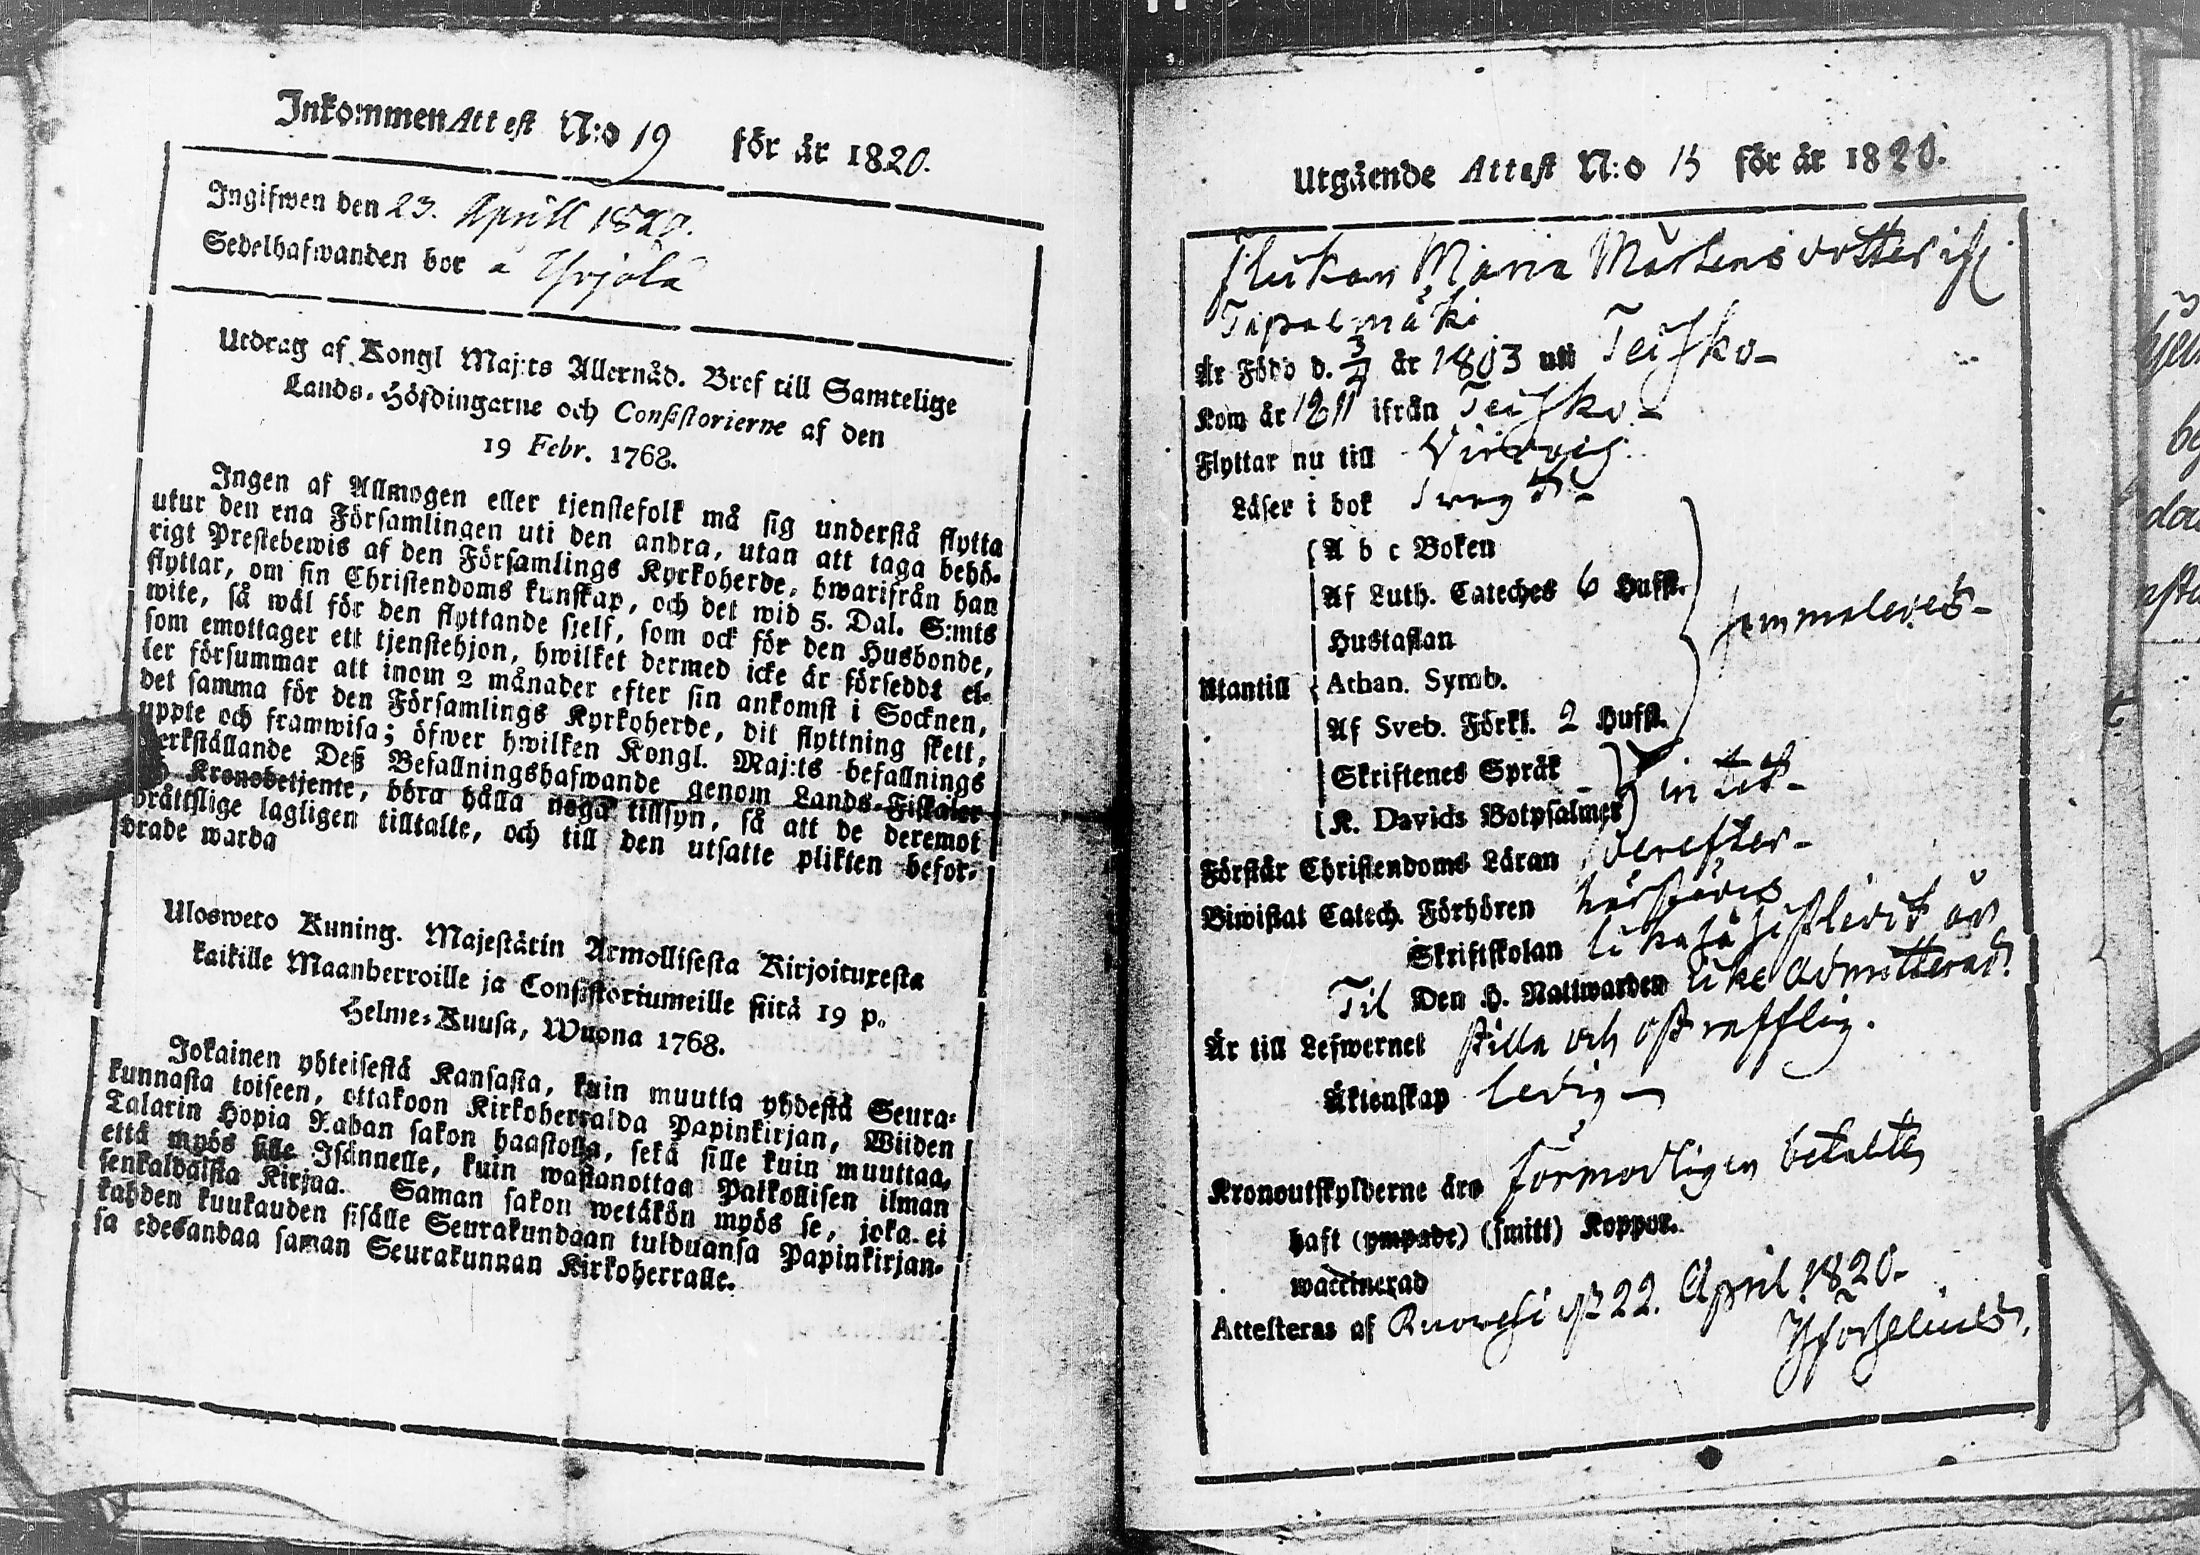 Inkommen Attest N:o 19 för år 1820.
Ingifwen den 23. Aprill 1820.
Sedelhafwanden bor å Yrjälä
Utdrag af Kongl Maj:ts Allernåd. Bref till Samtelige
Lands-Höfdingarne och Consistorierne af den
19 Febr. 1768.
Ingen af Allmogen eller tjenstefolk må sig understå flytta
utur den ena Församlingen uti den andra, utan att taga behö-
rigt Prestebewis af den Församlings Kyrkoherde, hwarifrån han
flyttar, om sin Christendoms kunskap, och det wid 5. Dal. S:mts
wite, så wäl för den flyttande sielf, som ock för den Husbonde,
som emottager ett tjenstehjon, hwilket dermed icke är förseddt el-
ler försummar att inom 2 månader efter sin ankomst i Socknen,
det samma för den Församlings Kyrkoherde, dit flyttning skett,
uppte och framwisa; öfwer hwilken Kongl. Maj:ts befallnings
werkställande Deß Befallningshafwande genom Lands-Fiskaler
och Kronobetjente, böra hålla noga tillsyn, så att de deremot
bråttslige lagligen tilltalte, och till den utsatte plikten befor-
drade warda
Ulosweto Kuning. Majestätin Armollisesta Kirjoituxesta
kaikille Maanherroille ja Consistoriumeille siitä 19 p.
Helme-Kuusa, Wuona 1768.
Jokainen yhteisestä Kansasta, kuin muutta yhdestä Seura-
kunnasta toiseen, ottakoon Kirkoherralda Papinkirjan, Wiiden
Talarin Hopia Rahan sakon haastolla, sekä sille kuin muuttaa,
että myös sille Isännelle, kuin wastanottaa Palkollisen ilman
senkaldaista Kirjaa. Saman sakon wetäkön myös se, joka ei
kahden kuukauden sisälle Seurakundaan tulduansa Papinkirjan-
sa edesandaa saman Seurakunnan Kirkoherralle.
Utgående Attest N:o 15 för år 1820.
Flickan Maria Mårtensdotter ifr.
Tapalmäki
Är Född d. 3/2 år 1803 uti Teisko
Kom år 1811 ifrån Teisko
Flyttar nu till Virdois
Läser i bok swagt
A b c Boken
Af Luth. Cateches 6 Hufst.
Hustaflan
Utantill Athan. Symb.
Af Sveb. Förkl. 2 Hufst.
sammaledes
Skriftenes Språk
K. Davids Botpsalmer
intet
Förstår Christendoms Läran derefter
Biwistat Catech. Förhören
Skriftskolan likaså
Til Den H. Nattwarden icke admitterad.
Är till Lefwernet stilla och ostrafflig.
Äktenskap ledig
Kronoutskylderne äro förmodligen betalte
haft (ympade) (smitt) Koppor.
waccinerad
Attesteras af Ruowesi 22. April 1820.